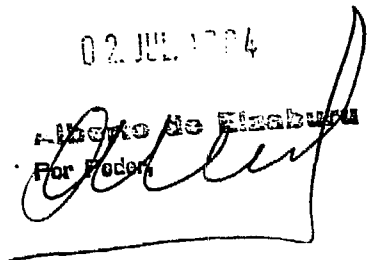 02. JUL. 1984
Alberto de Elzaburu
Por Poder,